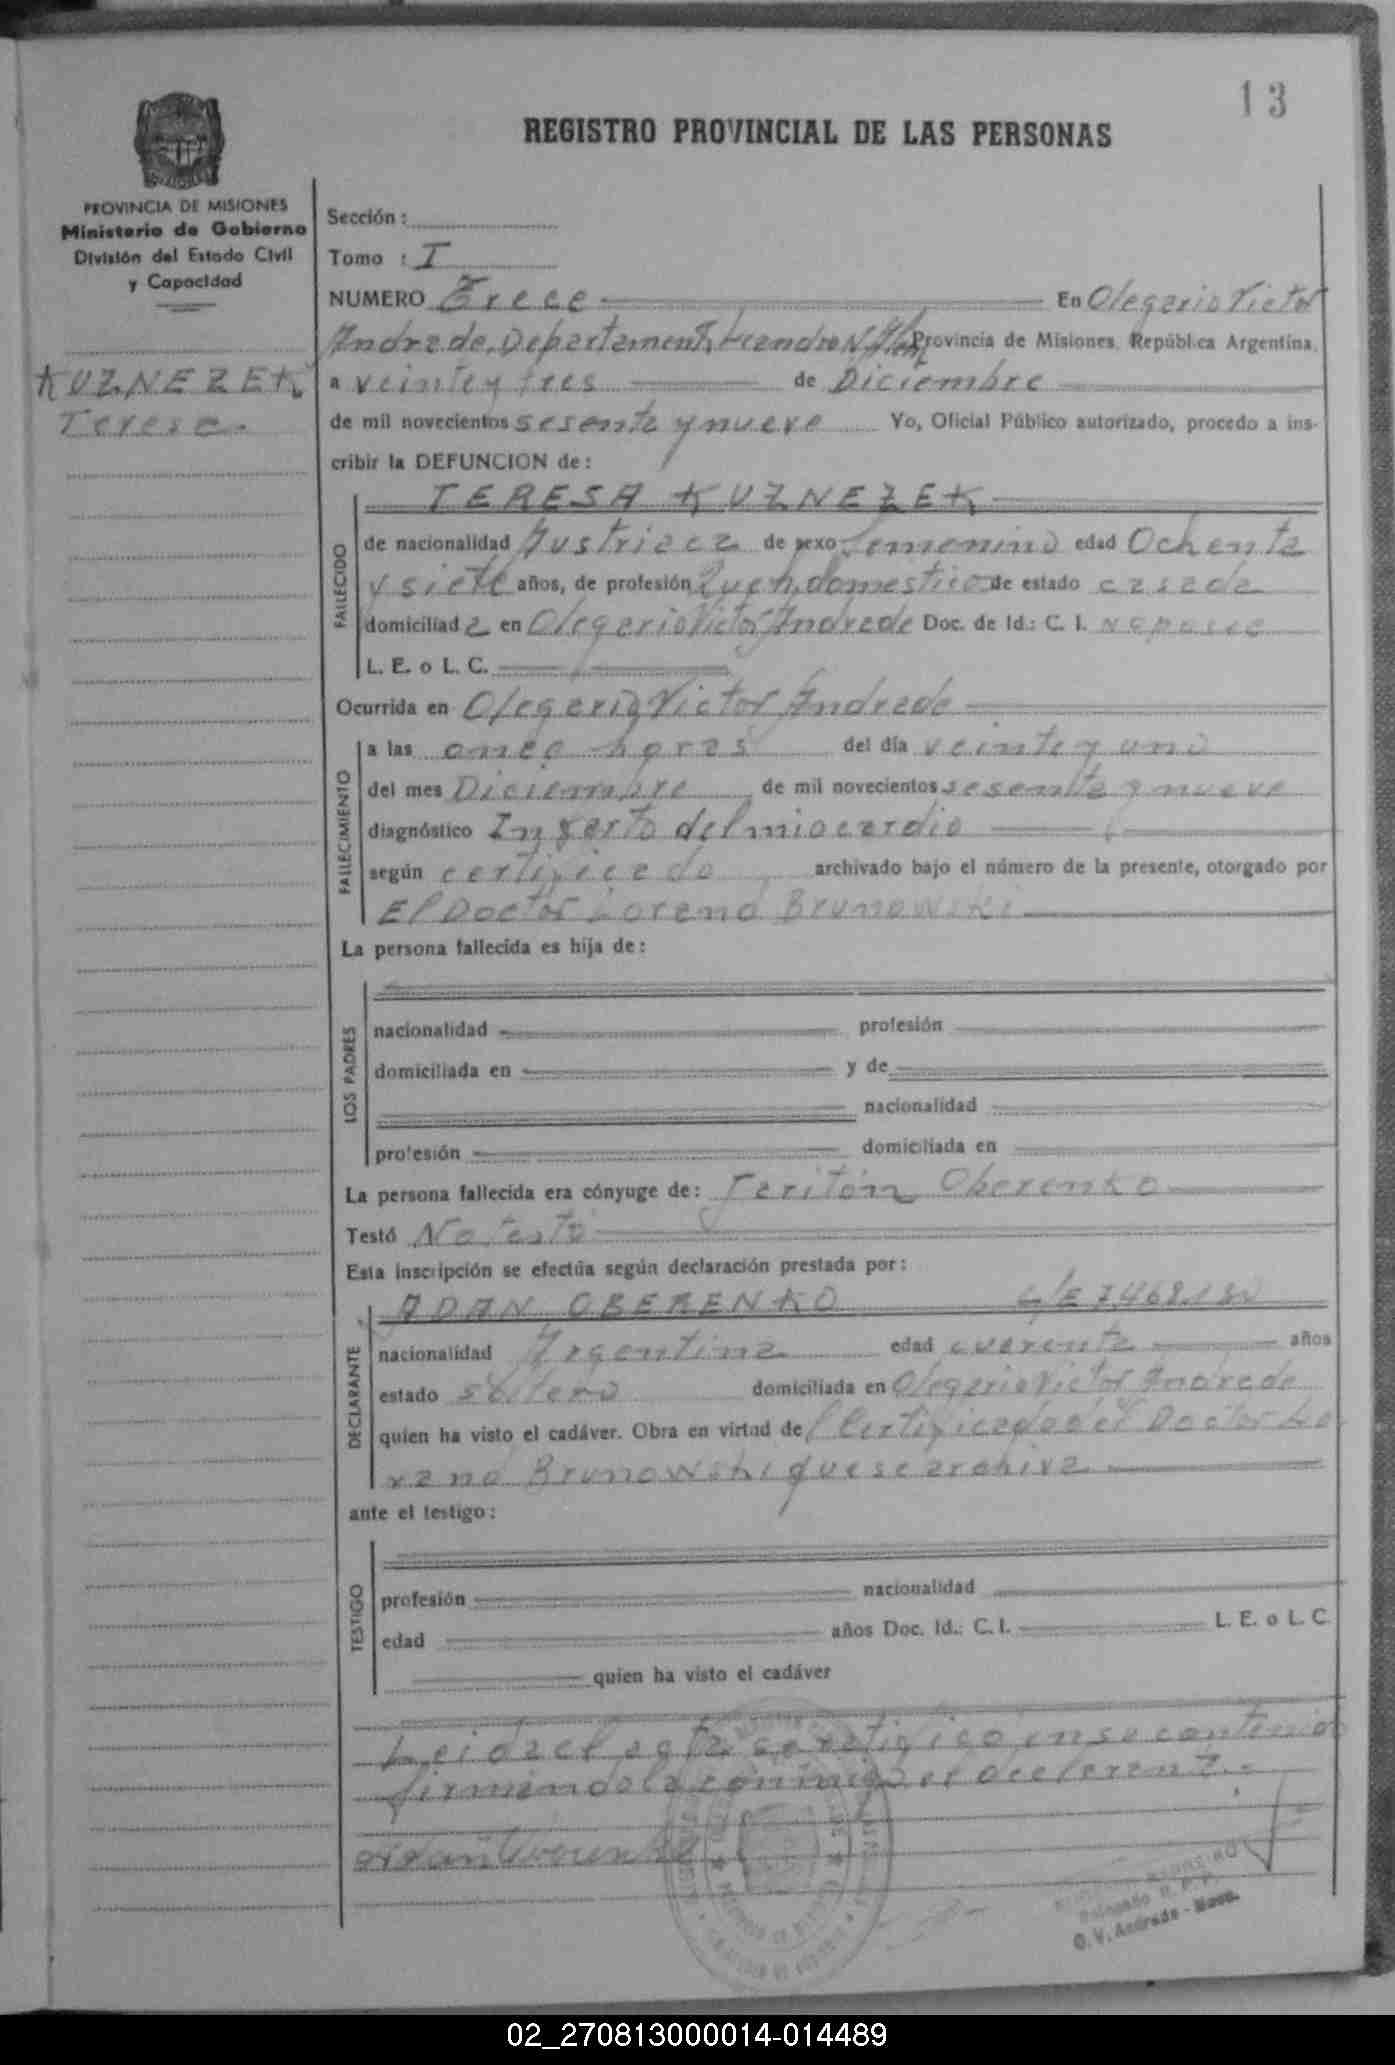 13
REGISTRO PROVINCIAL DE LAS PERSONAS
PROVINCIA DE MISIONES
Ministerio de Gobierno
División del Estado Civil
y Capacidad
KUZNEZEK
Teresa.
Sección :
Tomo : I
NUMERO Trece En Olegario Victor
Andrade, Departamento Leandro N. Alem Provincia de Misiones, República Argentina,
a veinte y tres de Diciembre
de mil novecientos sesenta y nueve Yo, Oficial Público autorizado, procedo a ins-
cribir la DEFUNCION de:
FALLECIDO
TERESA KUZNEZEK
de nacionalidad Austriaca de sexo femenino edad Ochenta
y siete años, de profesión Queh. domestico de estado casada
domiciliad a en Olegario Victor Andrade Doc. de Id.: C. I. no posee
L. E. o L. C.
Ocurrida en Olegario Victor Andrade
FALLECIMIENTO
a las once horas del día veinte y uno
del mes Diciembre de mil novecientos sesenta y nueve
diagnóstico Infarto del miocardio
según certificado archivado bajo el número de la presente, otorgado por
El Doctor Loreno Brunowski
La persona fallecida es hija de:
LOS PADRES
nacionalidad profesión
domiciliada en y de
nacionalidad
profesión domiciliada en
La persona fallecida era cónyuge de: Jaritón Oberenko
Testó No testó
Esta inscripción se efectúa según declaración prestada por:
DECLARANTE
ADAN OBERENKO L/E 7.468.180
nacionalidad Argentina edad cuarenta años
estado soltero domiciliada en Olegario Victor Andrade
quien ha visto el cadáver. Obra en virtud de Certificado del Doctor Lo
reno Brunowski que se archiva
ante el testigo:
TESTIGO
profesión nacionalidad
edad años Doc. Id.: C. I. L. E. o L. C.
quien ha visto el cadáver
Leida el acta se ratifico en su contenido
firmandola conmigo el declarante.-
Delegado R. P. P.
O. V. Andrade - Mnes.
02_270813000014-014489